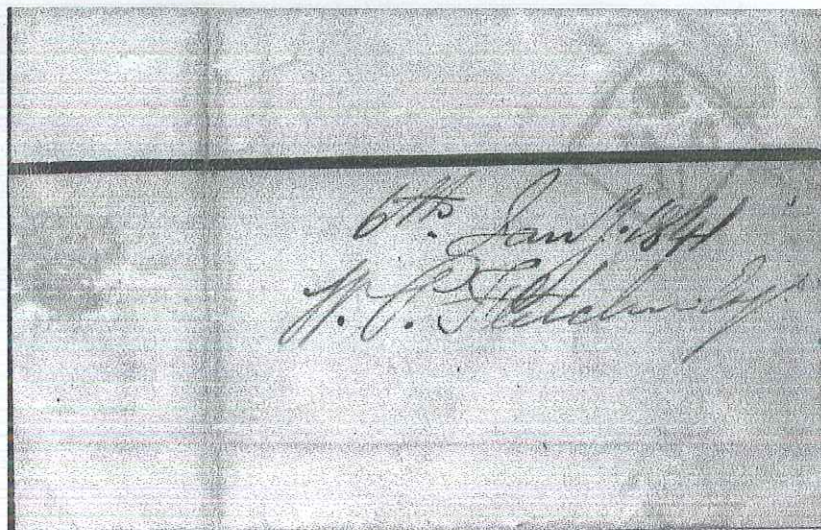 6th. Jany. 1841
W. P. Fletcher Esqr